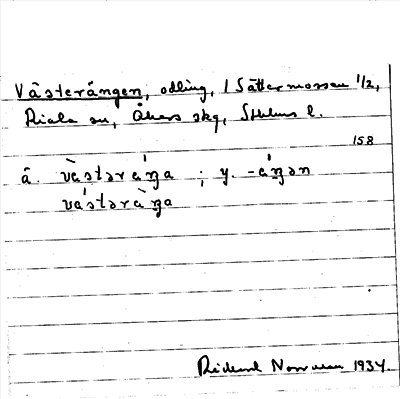 Västerängen, odling, 1 Sättermossen 1/2,
Riala sn, Åkers skg, Sthlms l.
158
ä. vὰstərάŋa ; y. -άŋən
vάstərὰŋa
Rickard Norrman 1934.